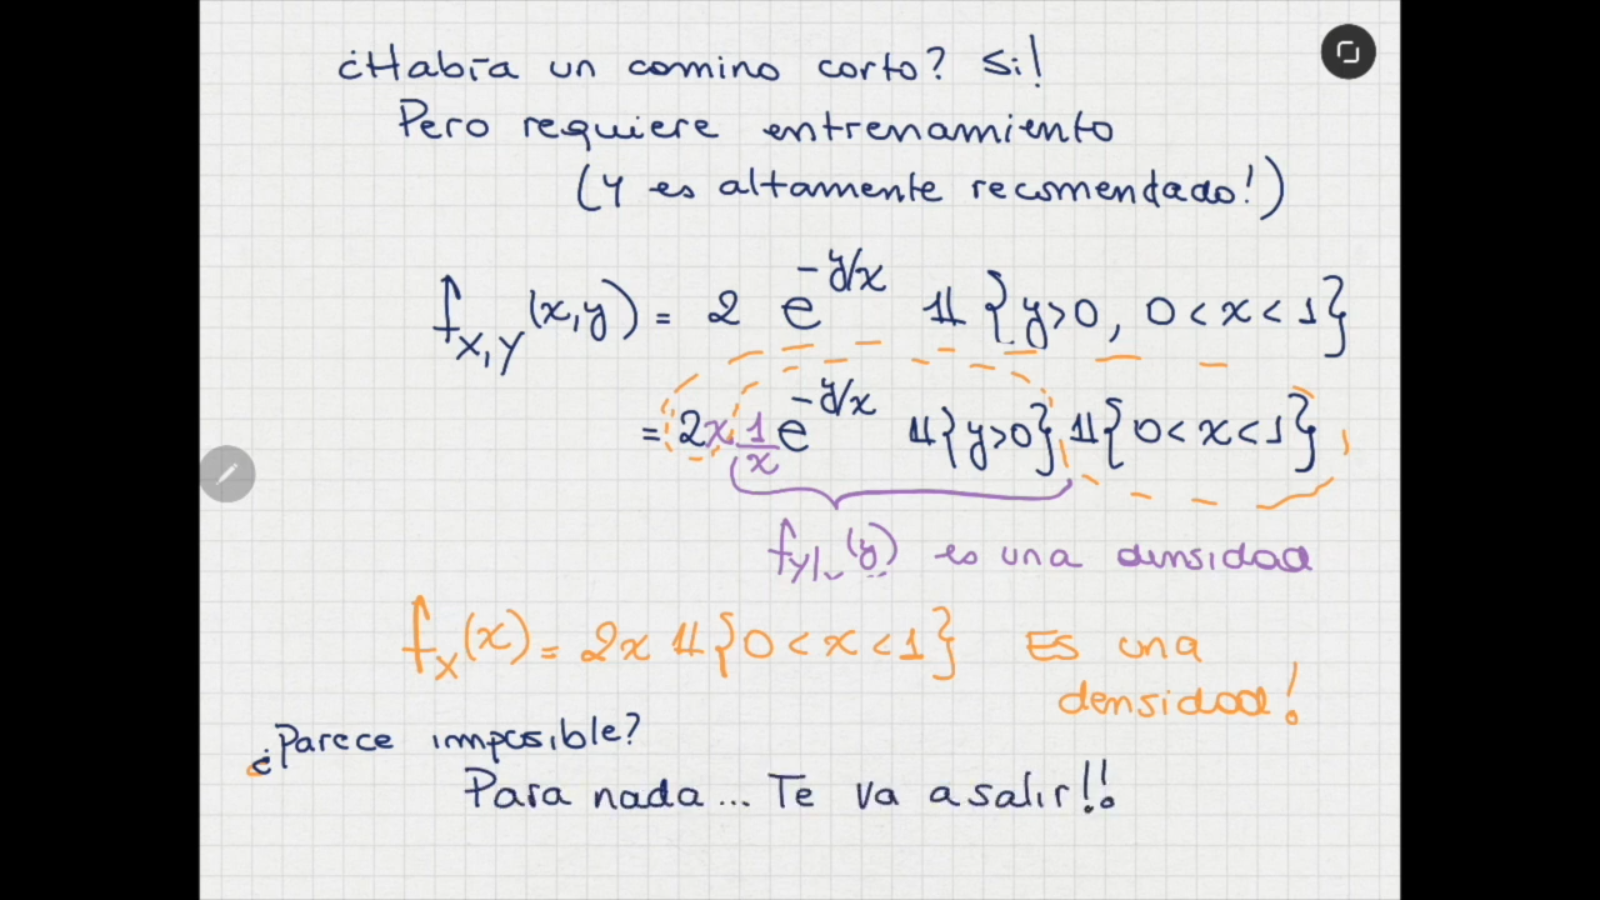 ¿Había un comino corto? Si!
Pero requiere entrenamiento
(Y es altamente recomendado!)
f_{X,Y}(x,y) = 2 e^{-y/x} 𝟙{y>0, 0<x<1}
= 2x 1/x e^{-y/x} 𝟙{y>0} 𝟙{0<x<1}
f_{Y|}(y) es una densidad
f_X(x) = 2x 𝟙{0<x<1} Es una
densidad!
¿Parece imposible?
Para nada... Te va a salir!!